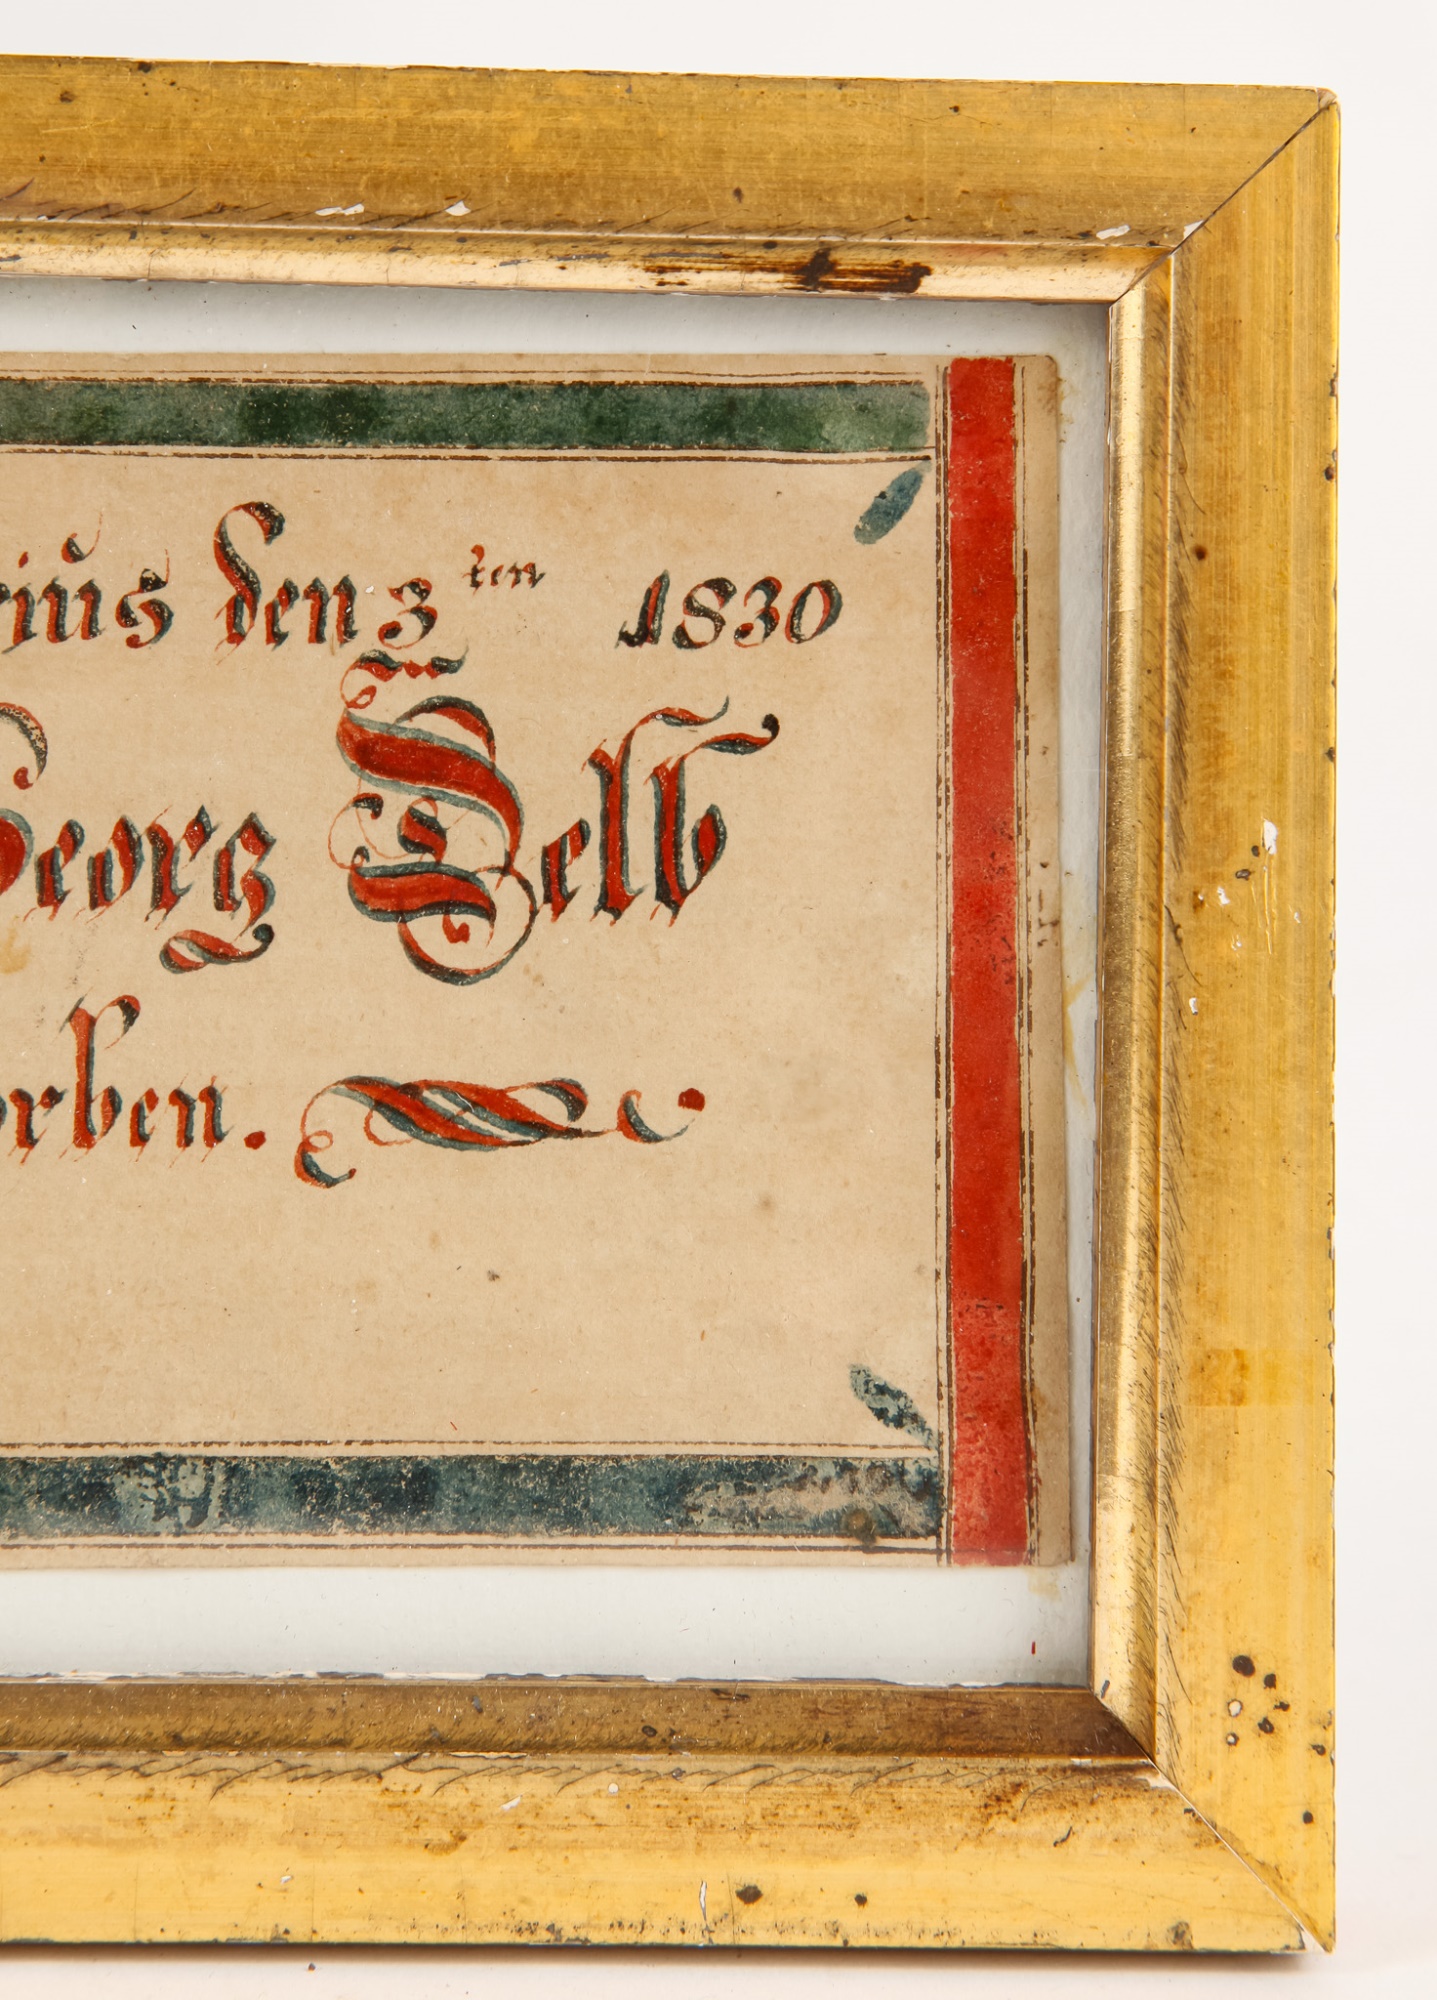 rius den 3ten 1830
Georg Selb
orben.